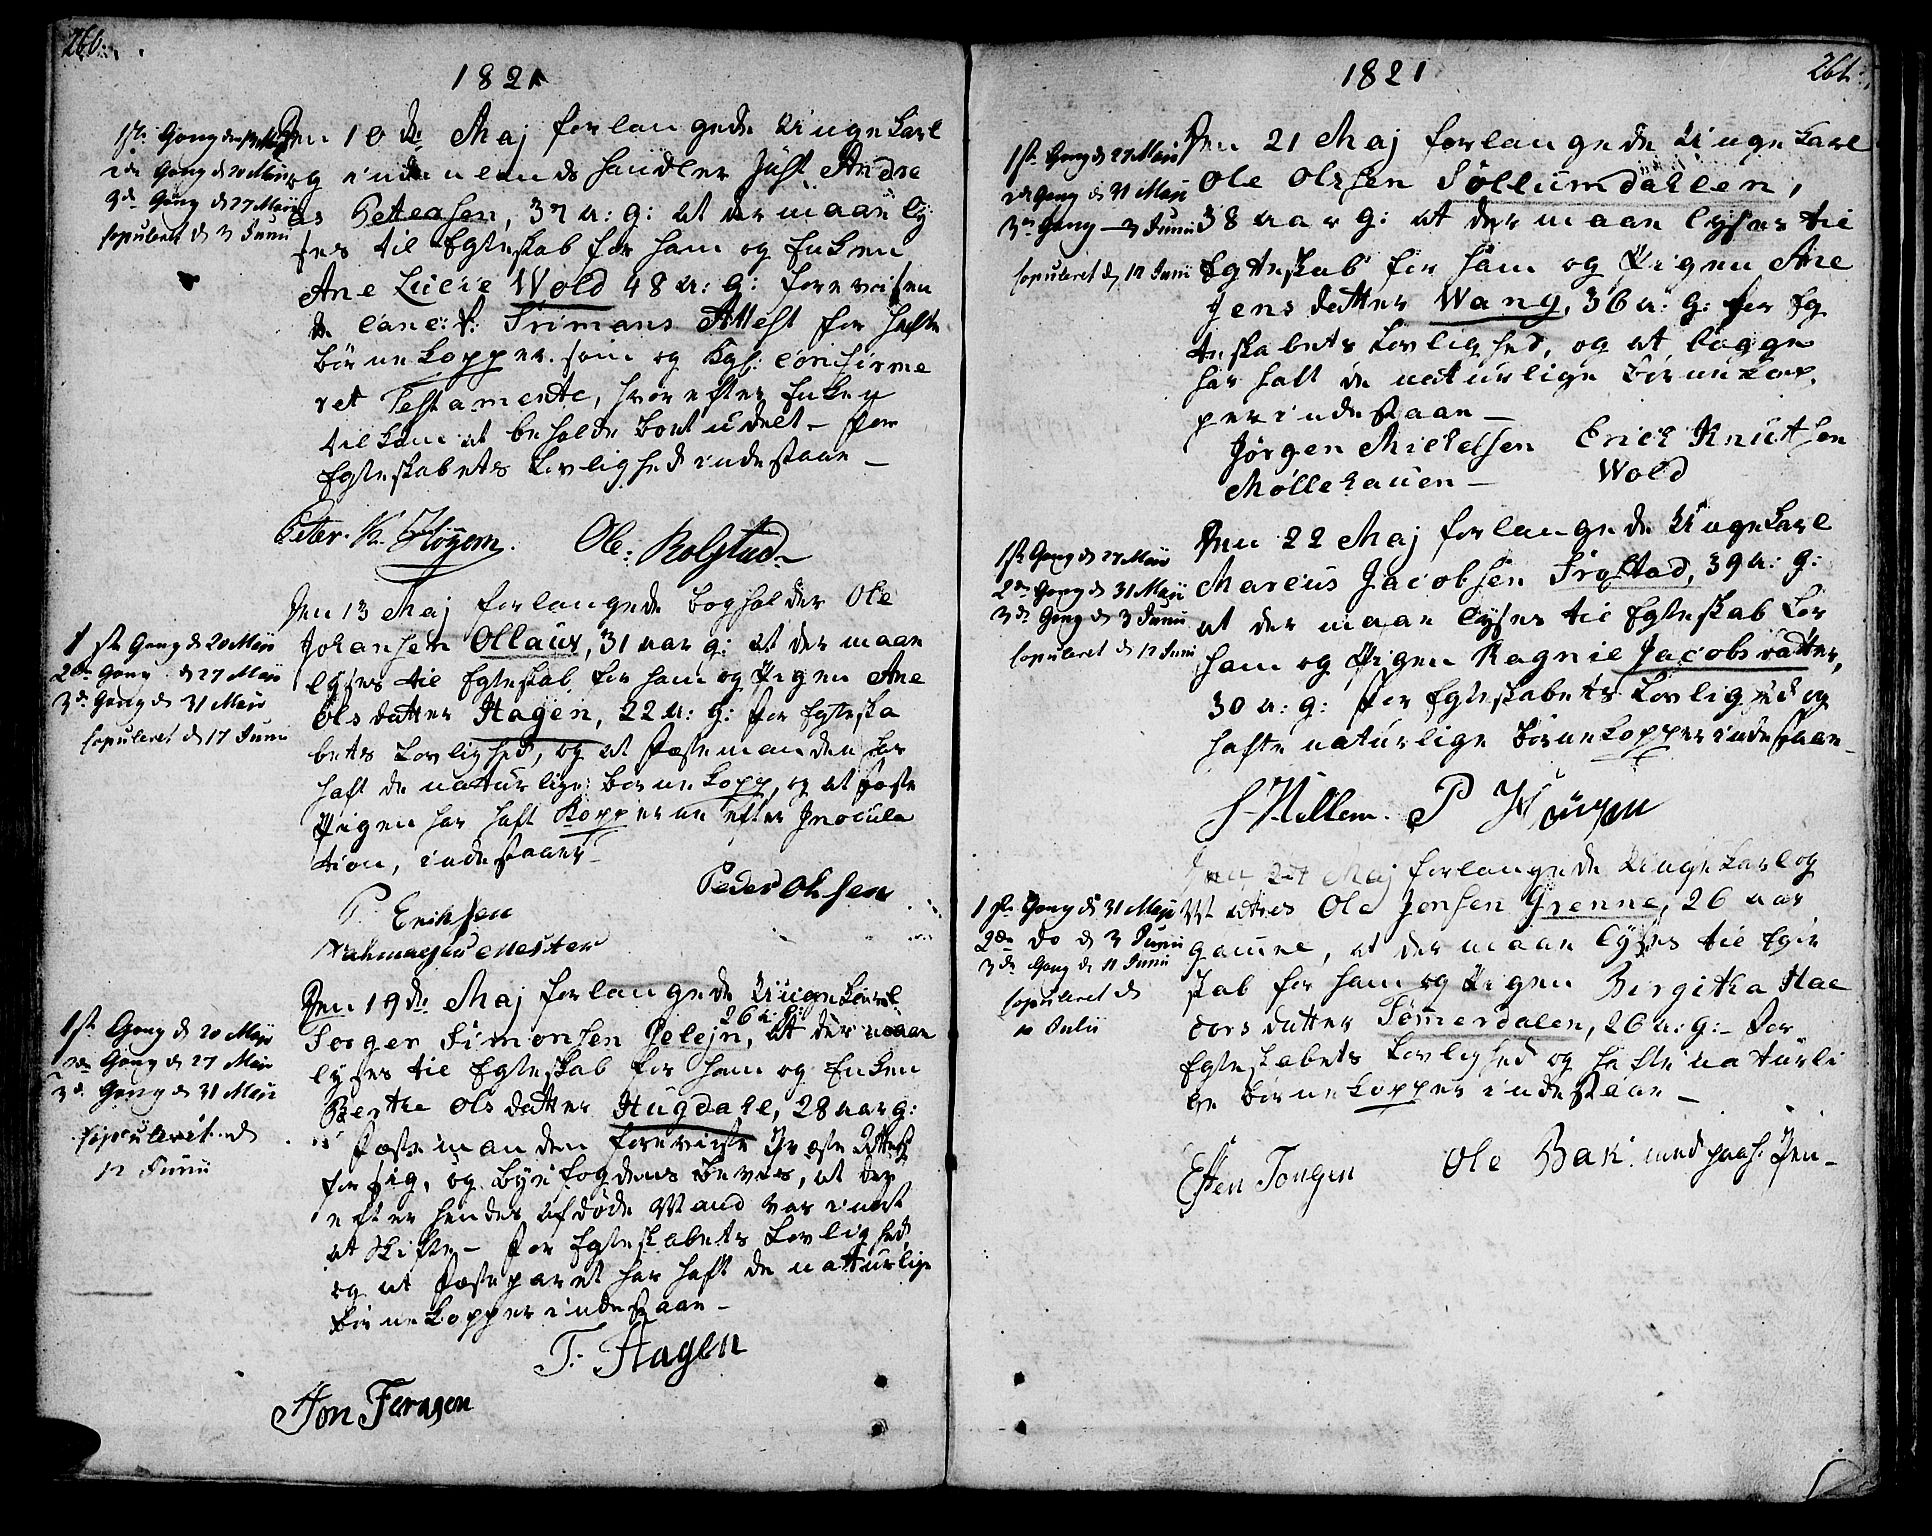 260.
1821
1ste Gang den 13 Maji
2de Gang d 20 Maji
3de Gang d 27 Maji
copuleret d 3 Junii
Den 10de Maj forlangede Ungekarl
og indenlands handler Just Andre
as Pettersen, 37 a: g: at der maae ly
ses til Egteskab for ham og Enken
Ane Lucie Wold 48 a: g: forevisen
de canc: r: Irimans Attest for hafte
börnekopper som og Kgl. confirme
ret Testamente, hvorefter Enken
tilkom at beholde Boet udelt – For
Egteskabets Lovlighed indestaae –
Peter K. Höyem. Ole: Rolstad
1ste Gang d 20 Maji
2den Gang d 27 Maji
3de Gang d 31 Maji
copuleret d 17 Junii
Den 13 Maj forlangede bogholder Ole
Johansen Ollaus, 31 aar g: at der maae
lyses til Egteskab for ham og Pigen Ane
Olsdatter Hagen, 22 a: g: For Egteska
bets Lovlighed, og at Festemanden har
haft de naturlige börnekopp, og at Feste
Pigen har haft Kopperne efter Inocula
tion, indestaaer –
Peder Olsen
P. Eriksen
1ste Gang d 20 Maji
2de Gang d 27 Maji
3de Gang d 31 Maji
copuleret d
12 Junii
Den 19de Maj forlangede Ungekarl
26 a: g:
Torger Simonsen Pelejn, at der maae
lyses til Egteskab for ham og Enken
Berthe Olsdatter Hugdahl, 28 aar g:
Festemanden foreviste Præste Attest
for sig, og Byefogdens Beviis, at der
efter hendes afdöde Mand var intet
at Skifte – For Egteskabets Lovlighed
og at Festeparet har haft de naturlige
börnekopper indestaae –
T. Hagen
Jon Feragen
261.
1821
1ste Gang d 27 Maji
2de Gang d 31 Maji
3de Gang – 3 Junii
copuleret d 12 Junii
Den 21 Maj forlangede Ungekarl
Ole Olsen Söllumdahlen,
38 aar g: at der maae lyses til
Egteskab for ham og Pigen Ane
Jensdatter Wang, 36 a: g: for Eg
teskabets Lovlighed, og at begge
har haft de naturlige Börnekop,
per indestaae –
Jörgen Mickelsen Erick Knutsen
Möllehauen – Wold
1ste Gang d 27 Maji
2de Gang d 31 Maji
3de Gang d 3 Junii
copuleret d 12 Junii
Den 22 Maj forlangede Ungekarl
Marcus Jacobsen Trostad, 39 a: g:
at der maae lyses til Egteskab for
ham og Pigen Ragnil Jacobsdatter,
30 a: g: For Egteskabets Lovlighed og
hafte naturlige börnekopper indestaae –
1ste Gang d 31 Maji
2de do d 3 Junii
3de Gang d 11 Junii
copuleret d
10 Julii
Den 27 Maj forlangede Ungekarl og
Ole Jensen Grenne, 26 aar
gamle, at der maae lyses til Egte
skab for ham og Pigen Birgitha Hal
dorsdatter Sommerdalen, 26 a: g: – For
Egteskabets Lovlighed og hafte naturli
ge börnekopper indestaae –
Esten Tongen Ole Bak. med paah. Pen –